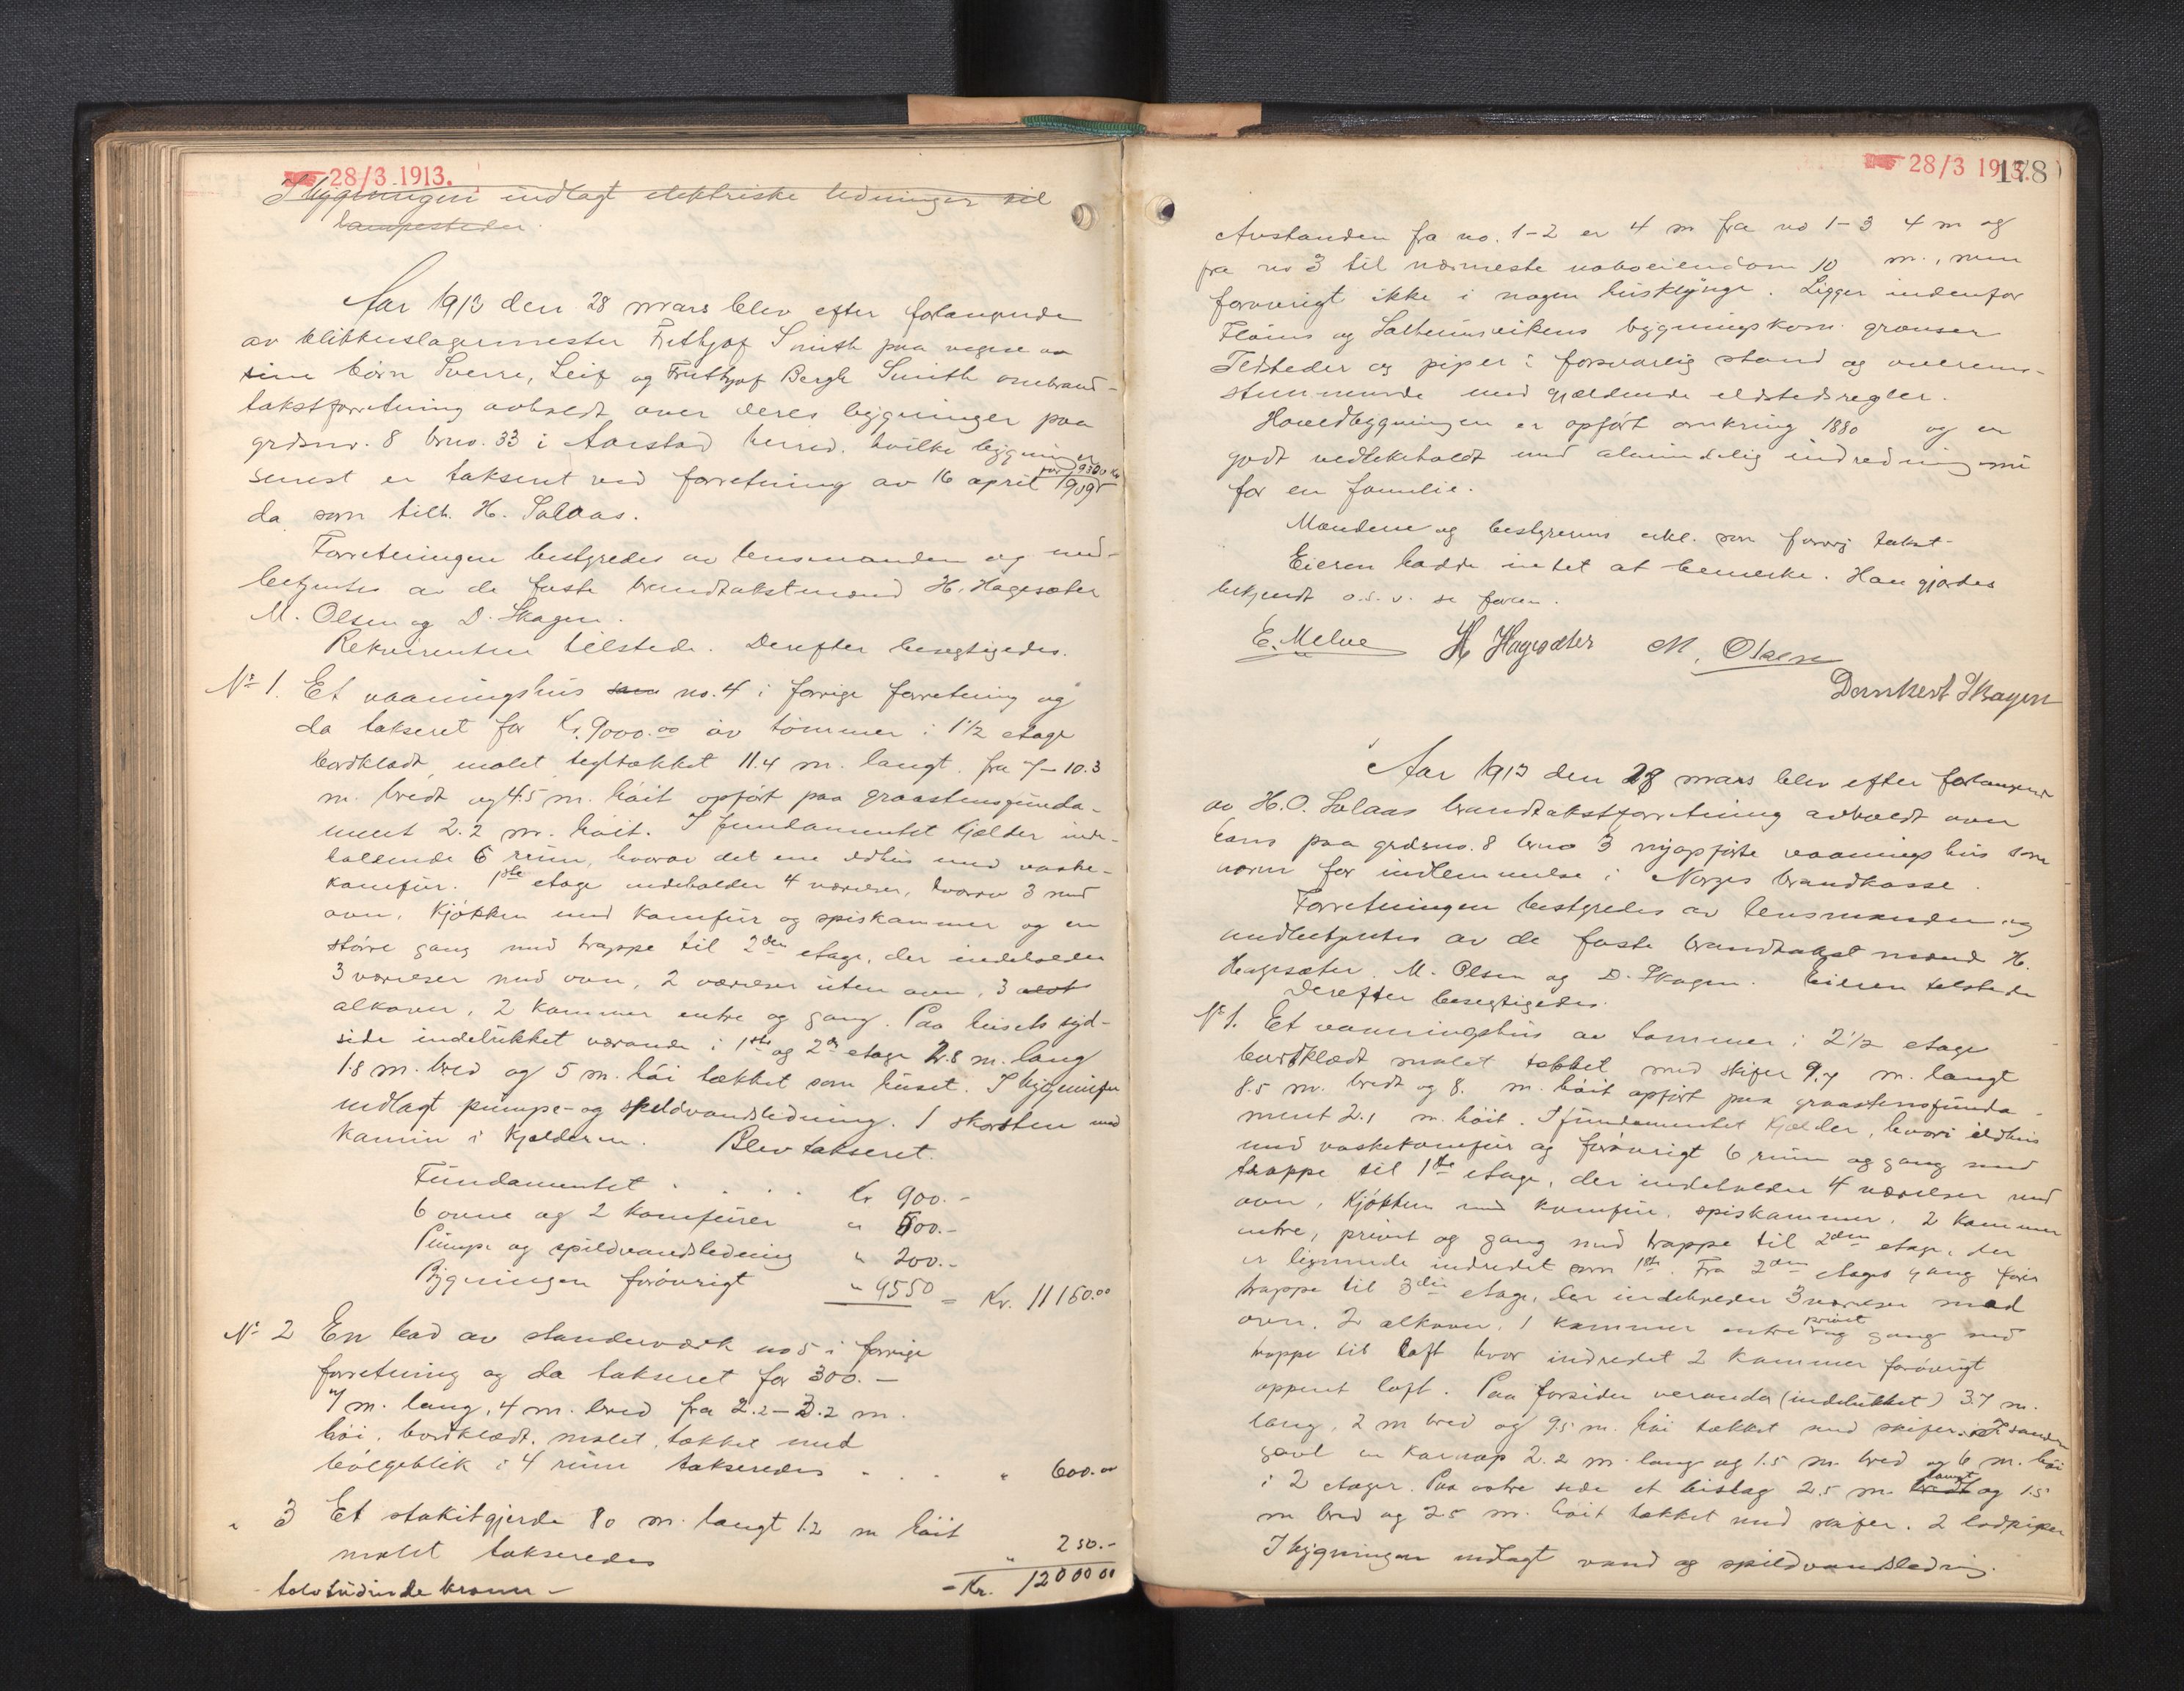 28/3 1913.
I bygningen indlagt elektriske ledninger til
lampesteder.
Aar 1913 den 28 mars blev efter forlangende
av blikkenslagermester Frithjof Smith paa vegne av
sine børn Sverre, Leif og Frithjof Bergh Smith ombrand-
takstforretning avholdt over deres bygninger paa
grdsnr. 8 brno. 33 i Aarstad herred. hvilke bygninger
senest er taksert ved forretning av 16 april 1909 for 9300 Kr
da som tilh. H. Solaas.
Forretningen bestyredes av lensmanden og med-
betjentes av de faste brandtakstmænd H. Hagesæter
M. Olsen og D. Skagen.
Rekvirenten tilstede. Derefter besegtigedes.
No 1. Et vaaningshus som no. 4 i forrige forretning og
da takseret for Kr. 9000.00 av tømmer i 1 1/2 etage
bordklædt, malet tegltækket 11.4 m. langt. fra 7-10.3
m. bredt og 4.5 m. høit opført paa graastensfunda-
ment 2.2 m. høit. I fundamentet kjelder inde-
holdende 6 rum, hvorav det ene ildhus med vaske-
komfur. 1ste etage indeholder 4 værelser, hvorav 3 med
ovn, kjøkken med komfur og spiskammer og en
større gang med trappe til 2den etage, der indeholder
3 værelser med ovn, 2 værelser uten ovn, 3 alot
alkover, 2 kammer entre og gang. Paa husets syd-
side indelukket veranda i 1ste og 2den etage 2.8 m. lang
1.8 m. bred og 5 m. høi tækket som huset. I bygningen
indlagt pumpe- og spildvandsledning. 1 skorsten med
kamin i kjælderen. Blev takseret.
Fundamentet . . . . Kr 900.-
6 ovne og 2 komfurer " 500.-
Pumpe og spildvandsledning " 200.-
Bygningen forøvrigt " 9550 = Kr. 11150.00
No 2 En bod av standerværk no 5 i forrige
forretning og da takseret for 300.-
7 m. lang, 4 m. bred fra 2.2-3.2 m.
høi, bordklædt, malet, tækket med
bølgeblik i 4 rum takseredes . . . " 600.00
" 3 Et stakitgjerde 80 m. langt 1.2 m høit
malet takseredes " 250.-
tolv tusinde kroner - = Kr. 12000 00
28/3 1913.
178
Avstanden fra no. 1-2 er 4 m fra no 1-3 4 m og
fra no 3 til nærmeste naboeiendom 10 m., men
forøvrigt ikke i nogen husklynge. Ligger indenfor
Fløens og Solheimsvikens bygningskom. grænser
Ildsteder og piper i forsvarlig stand og overens-
stemmende med gjældende ildstedsregler.
Hovedbygningen er opført omkring 1880 og er
godt vedlikeholdt med almindelig indredning
for en familie.
Mændene og bestyreren erkl. som forrig takst.
Eieren hadde intet at bemerke. Han gjordes
bekjendt o.s.v. se foran.
E. Melve H Hagesæter M. Olsen
Dankert Skagen
Aar 1913 den 28 mars blev efter forlangende
av H. O. Solaas brandtakstforretning avholdt over
hans paa grdsno. 8 brno 3 nyopførte vaaningshus som
norm for indlemmelse i Norges brandkasse.
Forretningen bestyredes av lensmanden og
medbetjentes av de faste brandtakstmænd H.
Hagesæter, M. Olsen og D. Skagen. Eieren tilstede
Derefter besegtigedes.
No 1. Et vaaningshus av tømmer i 2 1/2 etage
bordklædt malet tækket med skifer 9.7 m. langt
8.5 m. bredt og 8. m. høit opført paa graastensfunda-
ment 2.1 m. høit. I fundamentet kjælder, hvori ildhus
med vaskekomfur og forøvrigt 6 rum og gang med
trappe til 1ste etage, der indeholder 4 værelser med
ovn, kjøkken med komfur, spiskammer, 2 kammer
entre, privet og gang med trappe til 2den etage, der
er lignende indredet som 1ste. Fra 2den etages gang fører
trappe til 3die etage, der indeholder 3 værelser med
ovn, 2 alkover, 1 kammer entre privet og gang med
trappe til loft hvor indredet 2 kammer forøvrigt
oppent loft. Paa forsiden veranda (indelukket) 3.7 m.
lang, 2 m bred og 9.5 m. høi tækket med skifer. I søndre
gavl en karnap 2.2 m. lang og 1.5 m. bred og 6 m. høi
i 2 etager. Paa østre side et bislag 2.5 m. bredt langt og 1.5
m bred og 2.5 m. høit tækket med skifer. 2 lodpiper
I bygningen indlagt vand og spildvandsledning.